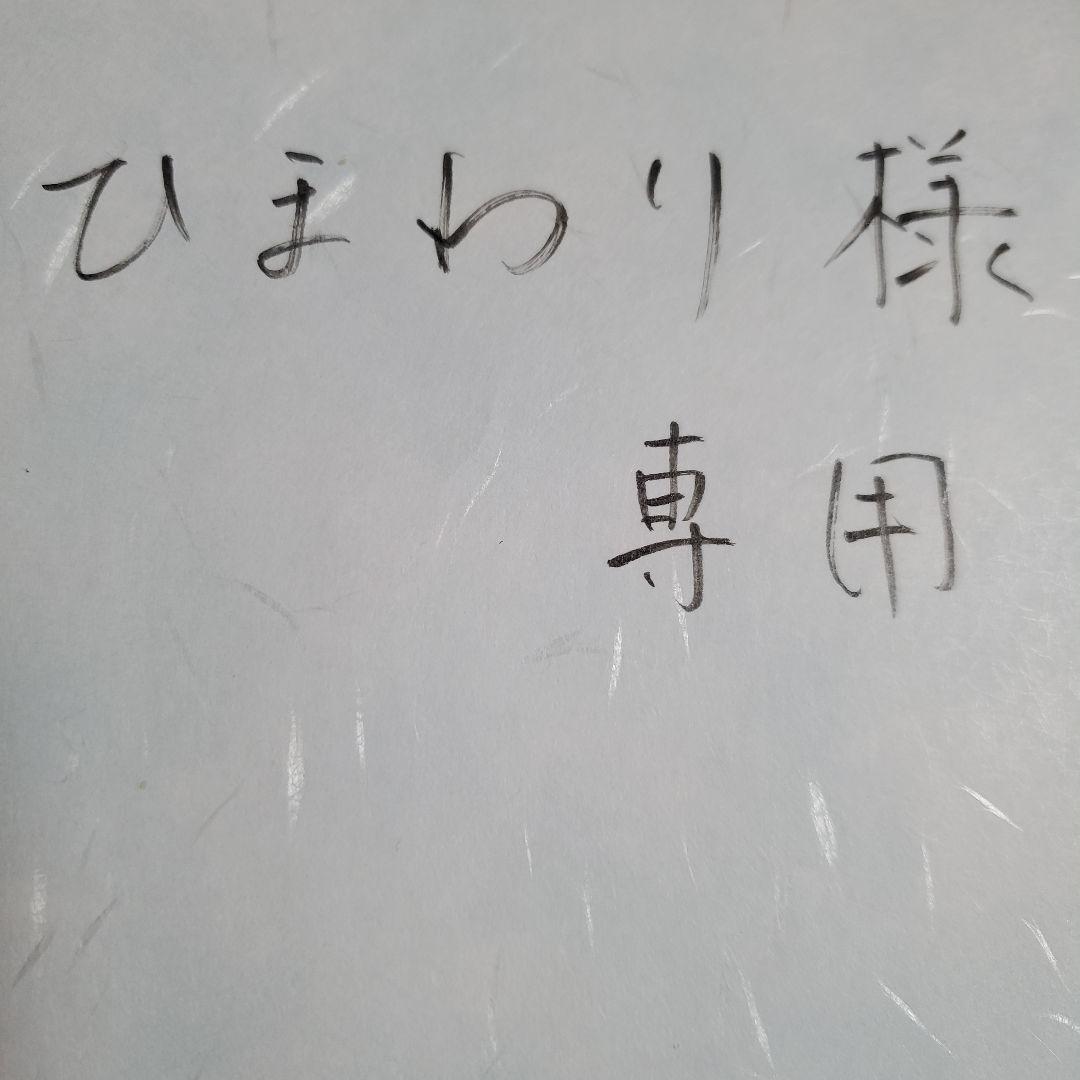 ひまわり様
専用